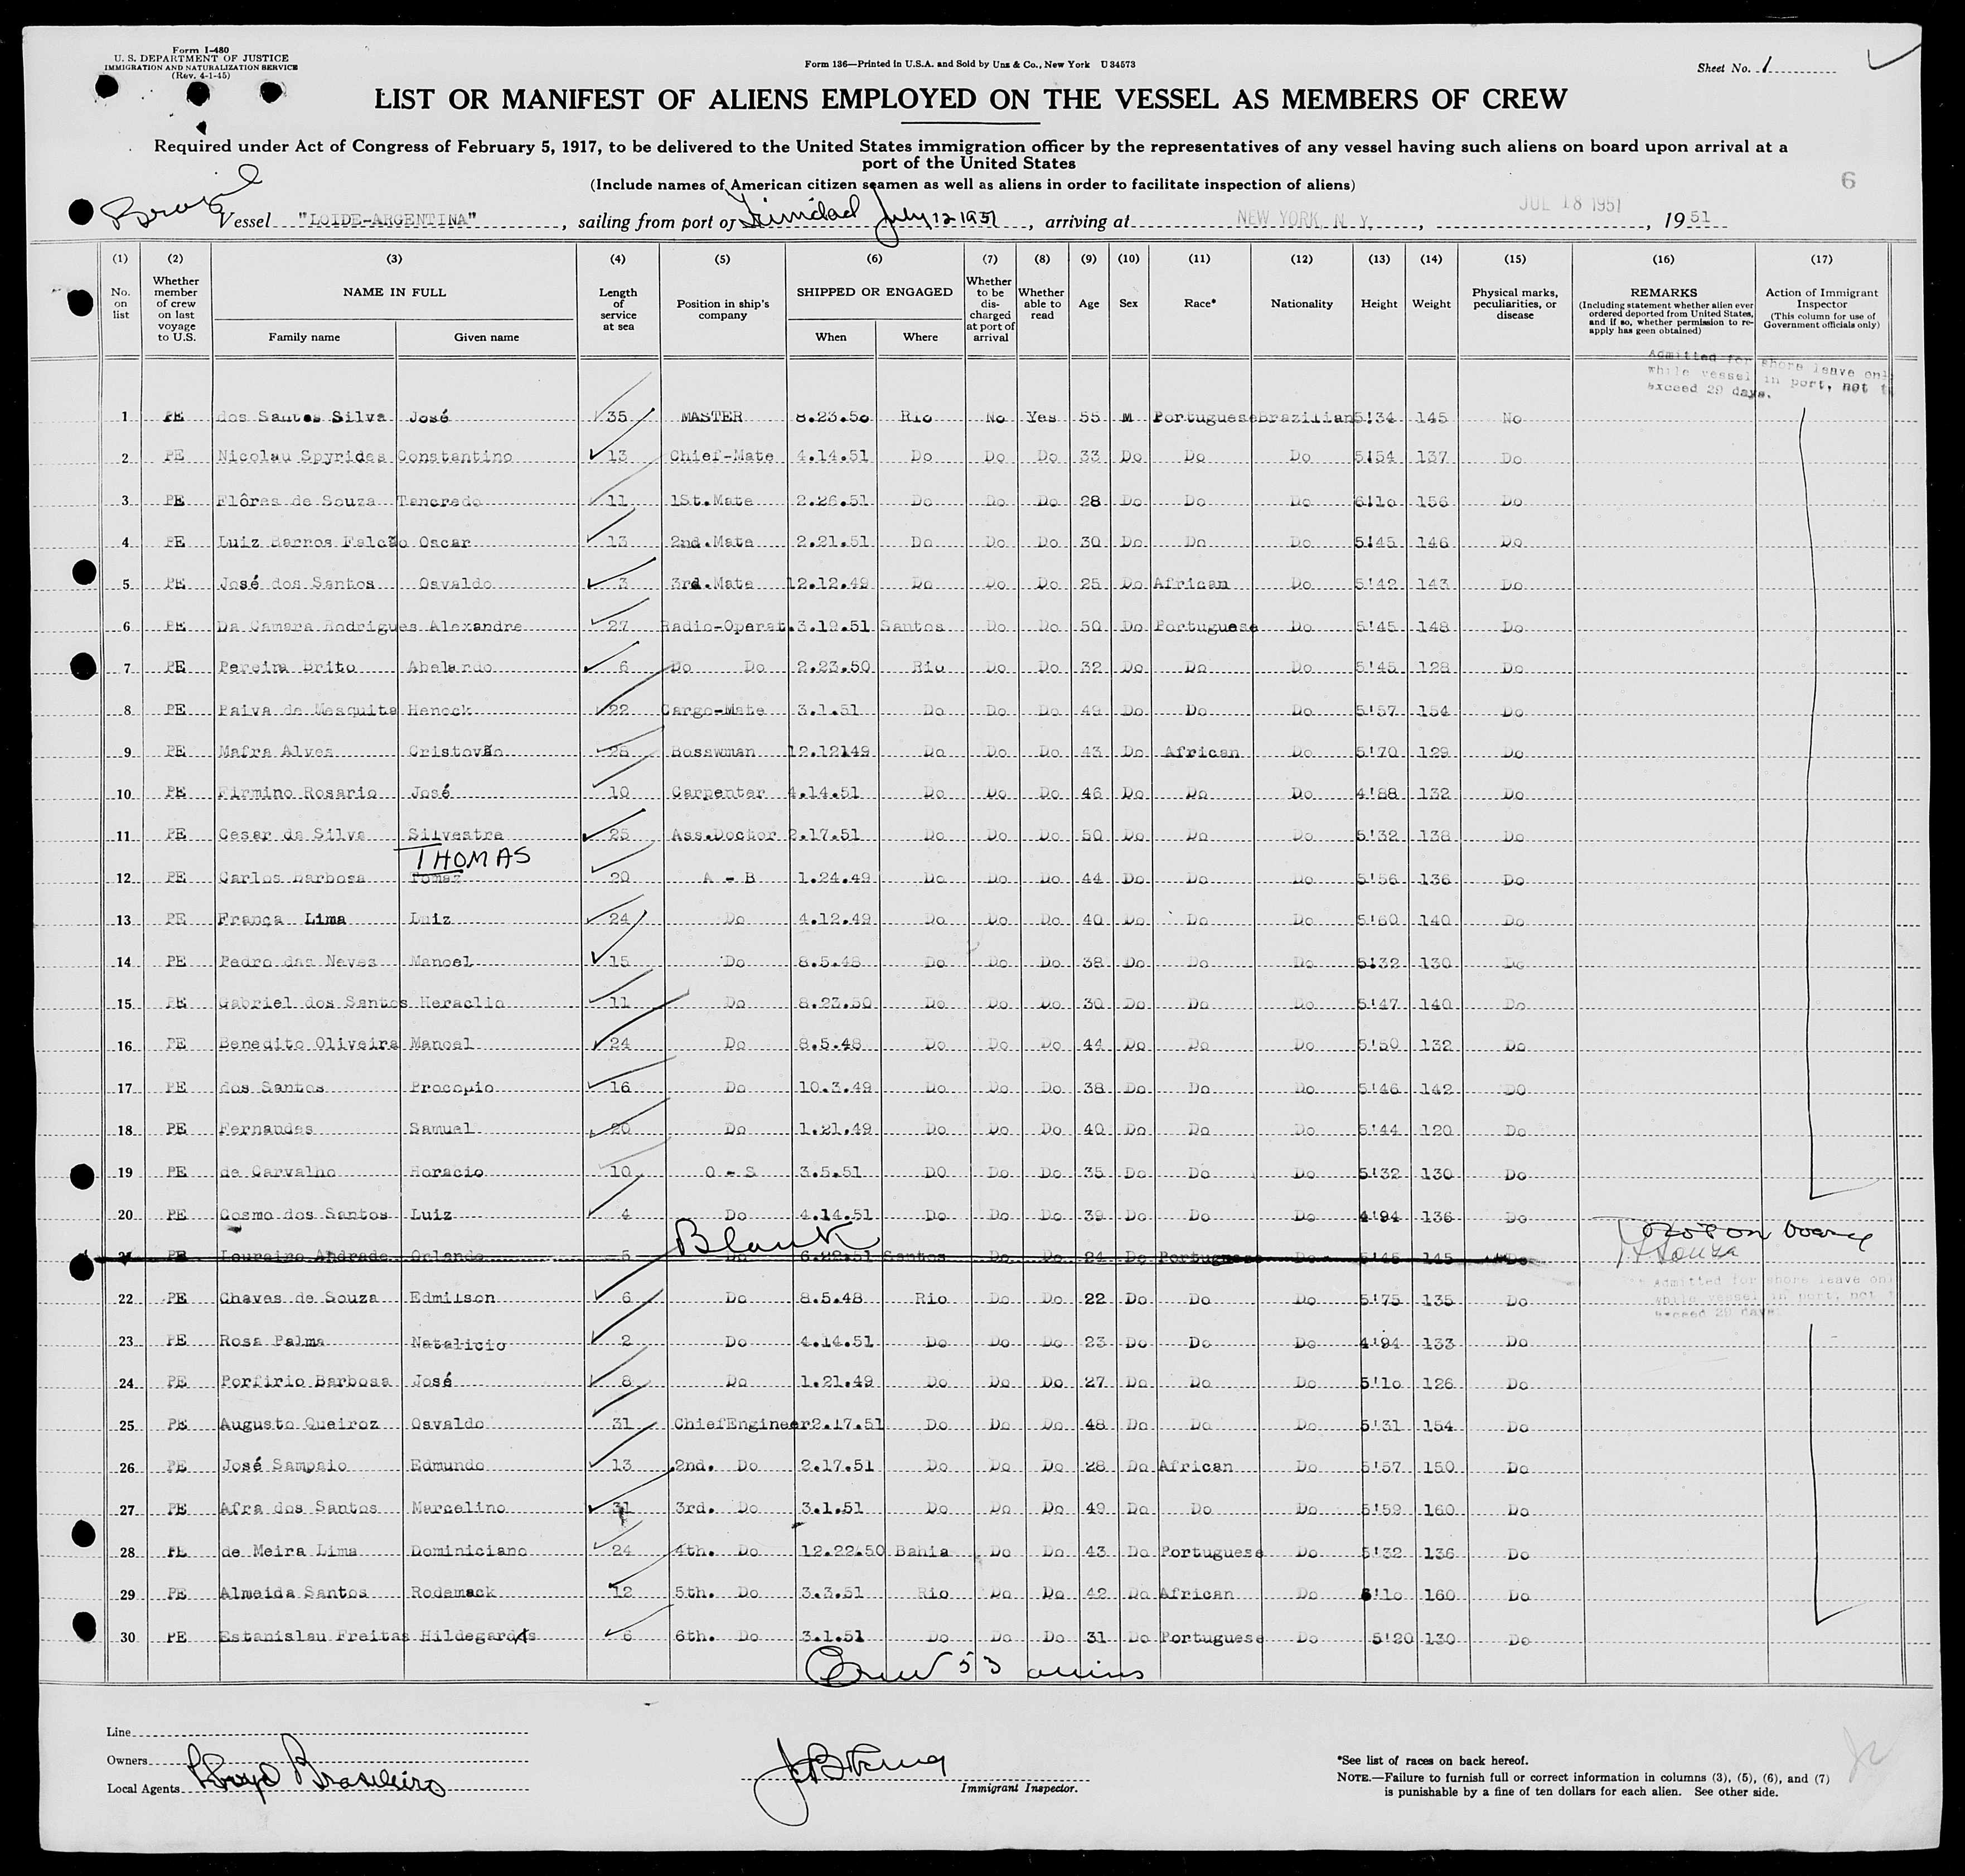 Form I-480
U. S. DEPARTMENT OF JUSTICE
IMMIGRATION AND NATURALIZATION SERVICE
(Rev. 4-1-45)
Form 136—Printed in U.S.A. and Sold by Unz & Co., New York U 34573
Sheet No. 1
LIST OR MANIFEST OF ALIENS EMPLOYED ON THE VESSEL AS MEMBERS OF CREW
Required under Act of Congress of February 5, 1917, to be delivered to the United States immigration officer by the representatives of any vessel having such aliens on board upon arrival at a
port of the United States
(Include names of American citizen seamen as well as aliens in order to facilitate inspection of aliens)
6
Brazil
JUL 18 1951
Vessel "LOIDE-ARGENTINA", sailing from port of Trinidad July 12 1951, arriving at NEW YORK, N. Y., , 1951
(1) No. on list
(2) Whether member of crew on last voyage to U.S.
(3) NAME IN FULL Family name Given name
(4) Length of service at sea
(5) Position in ship's company
(6) SHIPPED OR ENGAGED When Where
(7) Whether to be discharged at port of arrival
(8) Whether able to read
(9) Age
(10) Sex
(11) Race*
(12) Nationality
(13) Height
(14) Weight
(15) Physical marks, peculiarities, or disease
(16) REMARKS (Including statement whether alien ever ordered deported from United States, and if so, whether permission to re-apply has geen obtained)
(17) Action of Immigrant Inspector (This column for use of Government officials only)
Admitted for shore leave only
while vessel in port, not to
exceed 29 days.
1 PE dos Santos Silva José 35 MASTER 8.23.50 Rio No Yes 55 M Portuguese Brazilian 5!34 145 No
2 PE Nicolau Spyrides Constantino 13 Chief-Mate 4.14.51 Do Do Do 33 Do Do Do 5!54 137 Do
3 PE Flôres de Souza Tancredo 11 1St.Mate 2.26.51 Do Do Do 28 Do Do Do 6!10 156 Do
4 PE Luiz Barros Falcão Oscar 13 2nd.Mate 2.21.51 Do Do Do 30 Do Do Do 5!45 146 Do
5 PE José dos Santos Osvaldo 3 3rd.Mate 12.12.49 Do Do Do 25 Do African Do 5!42 143 Do
6 PE Da Camara Rodrigues Alexandre 27 Radio-Operat. 3.19.51 Santos Do Do 50 Do Portuguese Do 5!45 148 Do
7 PE Pereira Brito Abelardo 6 Do Do 2.23.50 Rio Do Do 32 Do Do Do 5!45 128 Do
8 PE Paiva de Mesquita Henock 22 Cargo-Mate 3.1.51 Do Do Do 49 Do Do Do 5!57 154 Do
9 PE Mafra Alves Cristovão 25 Bosswman 12.12149 Do Do Do 43 Do African Do 5!70 129 Do
10 PE Firmino Rosario José 10 Carpenter 4.14.51 Do Do Do 46 Do Do Do 4!88 132 Do
11 PE Cesar da Silva Silvestre 25 Ass.Doctor 2.17.51 Do Do Do 50 Do Do Do 5!32 138 Do
THOMAS
12 PE Carlos Barbosa Tomaz 20 A - B 1.24.49 Do Do Do 44 Do Do Do 5!56 136 Do
13 PE França Lima Luiz 24 Do 4.12.49 Do Do Do 40 Do Do Do 5!60 140 Do
14 PE Pedro das Neves Manoel 15 Do 8.5.48 Do Do Do 38 Do Do Do 5!32 130 Do
15 PE Gabriel dos Santos Heraclio 11 Do 8.23.50 Do Do Do 30 Do Do Do 5!47 140 Do
16 PE Benedito Oliveira Manoel 24 Do 8.5.48 Do Do Do 44 Do Do Do 5!50 132 Do
17 PE dos Santos Procopio 16 Do 10.3.49 Do Do Do 38 Do Do Do 5!46 142 DO
18 PE Fernandes Samuel 20 Do 1.21.49 Do Do Do 40 Do Do Do 5!44 120 Do
19 PE de Carvalho Horacio 10 O - S 3.5.51 DO Do Do 35 Do Do Do 5!32 130 Do
20 PE Cosmo dos Santos Luiz 4 Do 4.14.51 Do Do Do 39 Do Do Do 4!94 136 Do
Blank
21 PE Loureiro Andrade Orlando 5 Do 6.22.51 Santos Do Do 24 Do Portuguese Do 5!45 145 Do
Admitted for shore leave only
while vessel in port, not t
exceed 29 days
22 PE Chaves de Souza Edmilson 6 Do 8.5.48 Rio Do Do 22 Do Do Do 5!75 135 Do
23 PE Rosa Palma Natalicio 2 Do 4.14.51 Do Do Do 23 Do Do Do 4!94 133 Do
24 PE Porfirio Barbosa José 8 Do 1.21.49 Do Do Do 27 Do Do Do 5!10 126 Do
25 PE Augusto Queiroz Osvaldo 31 ChiefEngineer 2.17.51 Do Do Do 48 Do Do Do 5!31 154 Do
26 PE José Sampaio Edmundo 13 2nd. Do 2.17.51 Do Do Do 28 Do African Do 5!57 150 Do
27 PE Afra dos Santos Marcelino 31 3rd. Do 3.1.51 Do Do Do 49 Do Do Do 5!59 160 Do
28 PE de Meira Lima Dominiciano 24 4th. Do 12.22.50 Bahia Do Do 43 Do Portuguese Do 5!32 136 Do
29 PE Almeida Santos Rodemack 12 5th. Do 3.3.51 Rio Do Do 42 Do African Do 6!10 160 Do
30 PE Estanislau Freitas Hildegardis 6 6th. Do 3.1.51 Do Do Do 31 Do Portuguese Do 5!20 130 Do
Crew 53 aliens
Line
Owners
Local Agents Lloyd Brasileiro
Immigrant Inspector.
*See list of races on back hereof.
NOTE.—Failure to furnish full or correct information in columns (3), (5), (6), and (7)
is punishable by a fine of ten dollars for each alien. See other side.